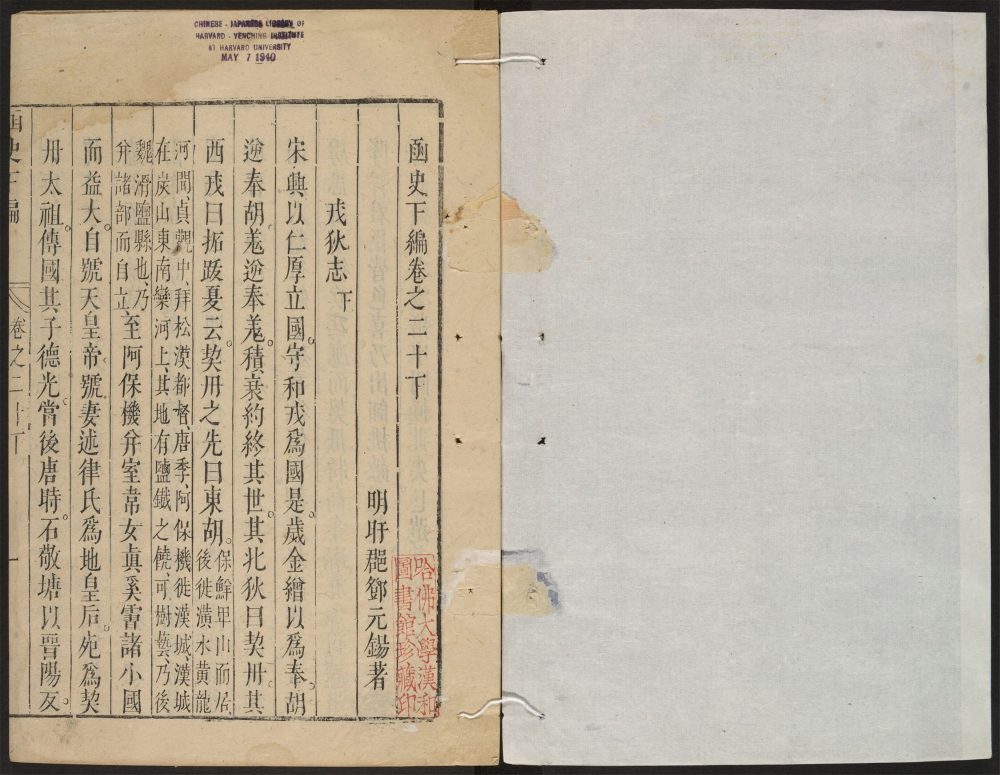 CHINESE - JAPANESE LIBRARY OF
HARVARD - YENCHING INSTITUTE
AT HARVARD UNIVERSITY
MAY 7 1940
函史下編卷之二十下
明盱郡鄧元錫著
戎狄志下
宋興以仁厚立國守和戎爲國是歲金繒以爲奉胡
逆奉胡羗逆奉羗積衰約終其世其北狄曰契丹其
西戎曰拓跋夏云契丹之先曰東胡
保鮮卑山而居
後徙潢水黃龍
河間貞觀中拜松漠都督唐季阿保機徙漢城漢城
在炭山東南欒河上其地有鹽鐵之饒可樹藝乃後
魏滑鹽縣也乃
幷諸部而自立
至阿保機幷室韋女真奚霫諸小國
而益大自號天皇帝號妻述律氏爲地皇后死爲契
丹太祖傳國其子德光當後唐時石敬塘以晉陽反
函史下編
卷之二十下
一
哈佛大學漢和
圖書館珍藏印